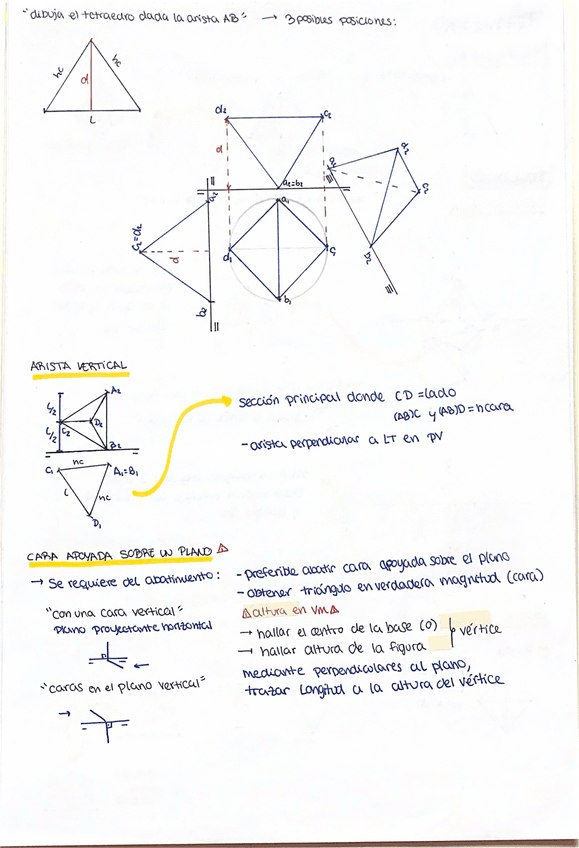 "dibuja el tetraedro dada la arista AB" → 3 posibles posiciones:
hc
hc
d
L
d2
c2
d
a2=b2
a1
d1
c1
b1
a2
c2=d2
d
b2
ARISTA VERTICAL
L/2
L/2
A2
C2
D2
B2
C1
hc
A1=B1
L
hc
D1
sección principal donde CD = lado
(AB)C y (AB)D = hcara
- arista perpendicular a LT en PV
CARA APOYADA SOBRE UN PLANO
→ Se requiere del abatimiento:
"con una cara vertical"
plano proyectante horizontal
"caras en el plano vertical"
- preferible abatir cara apoyada sobre el plano
- obtener triángulo en verdadera magnitud (cara)
altura en VM
→ hallar el centro de la base (O)
→ hallar altura de la figura
vértice
mediante perpendiculares al plano,
trazar longitud a la altura del vértice